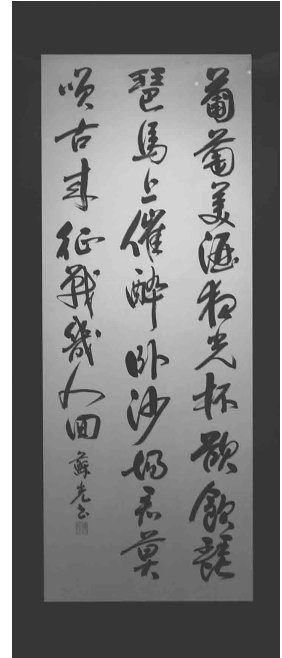 葡萄美酒夜光杯欲飲琵
琶馬上催醉卧沙場君莫
咲古来征戰幾人回
蘇光书